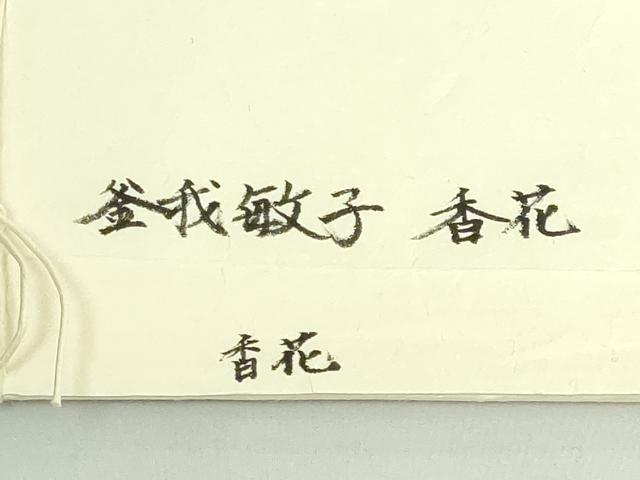 釜我敏子 香花
香花